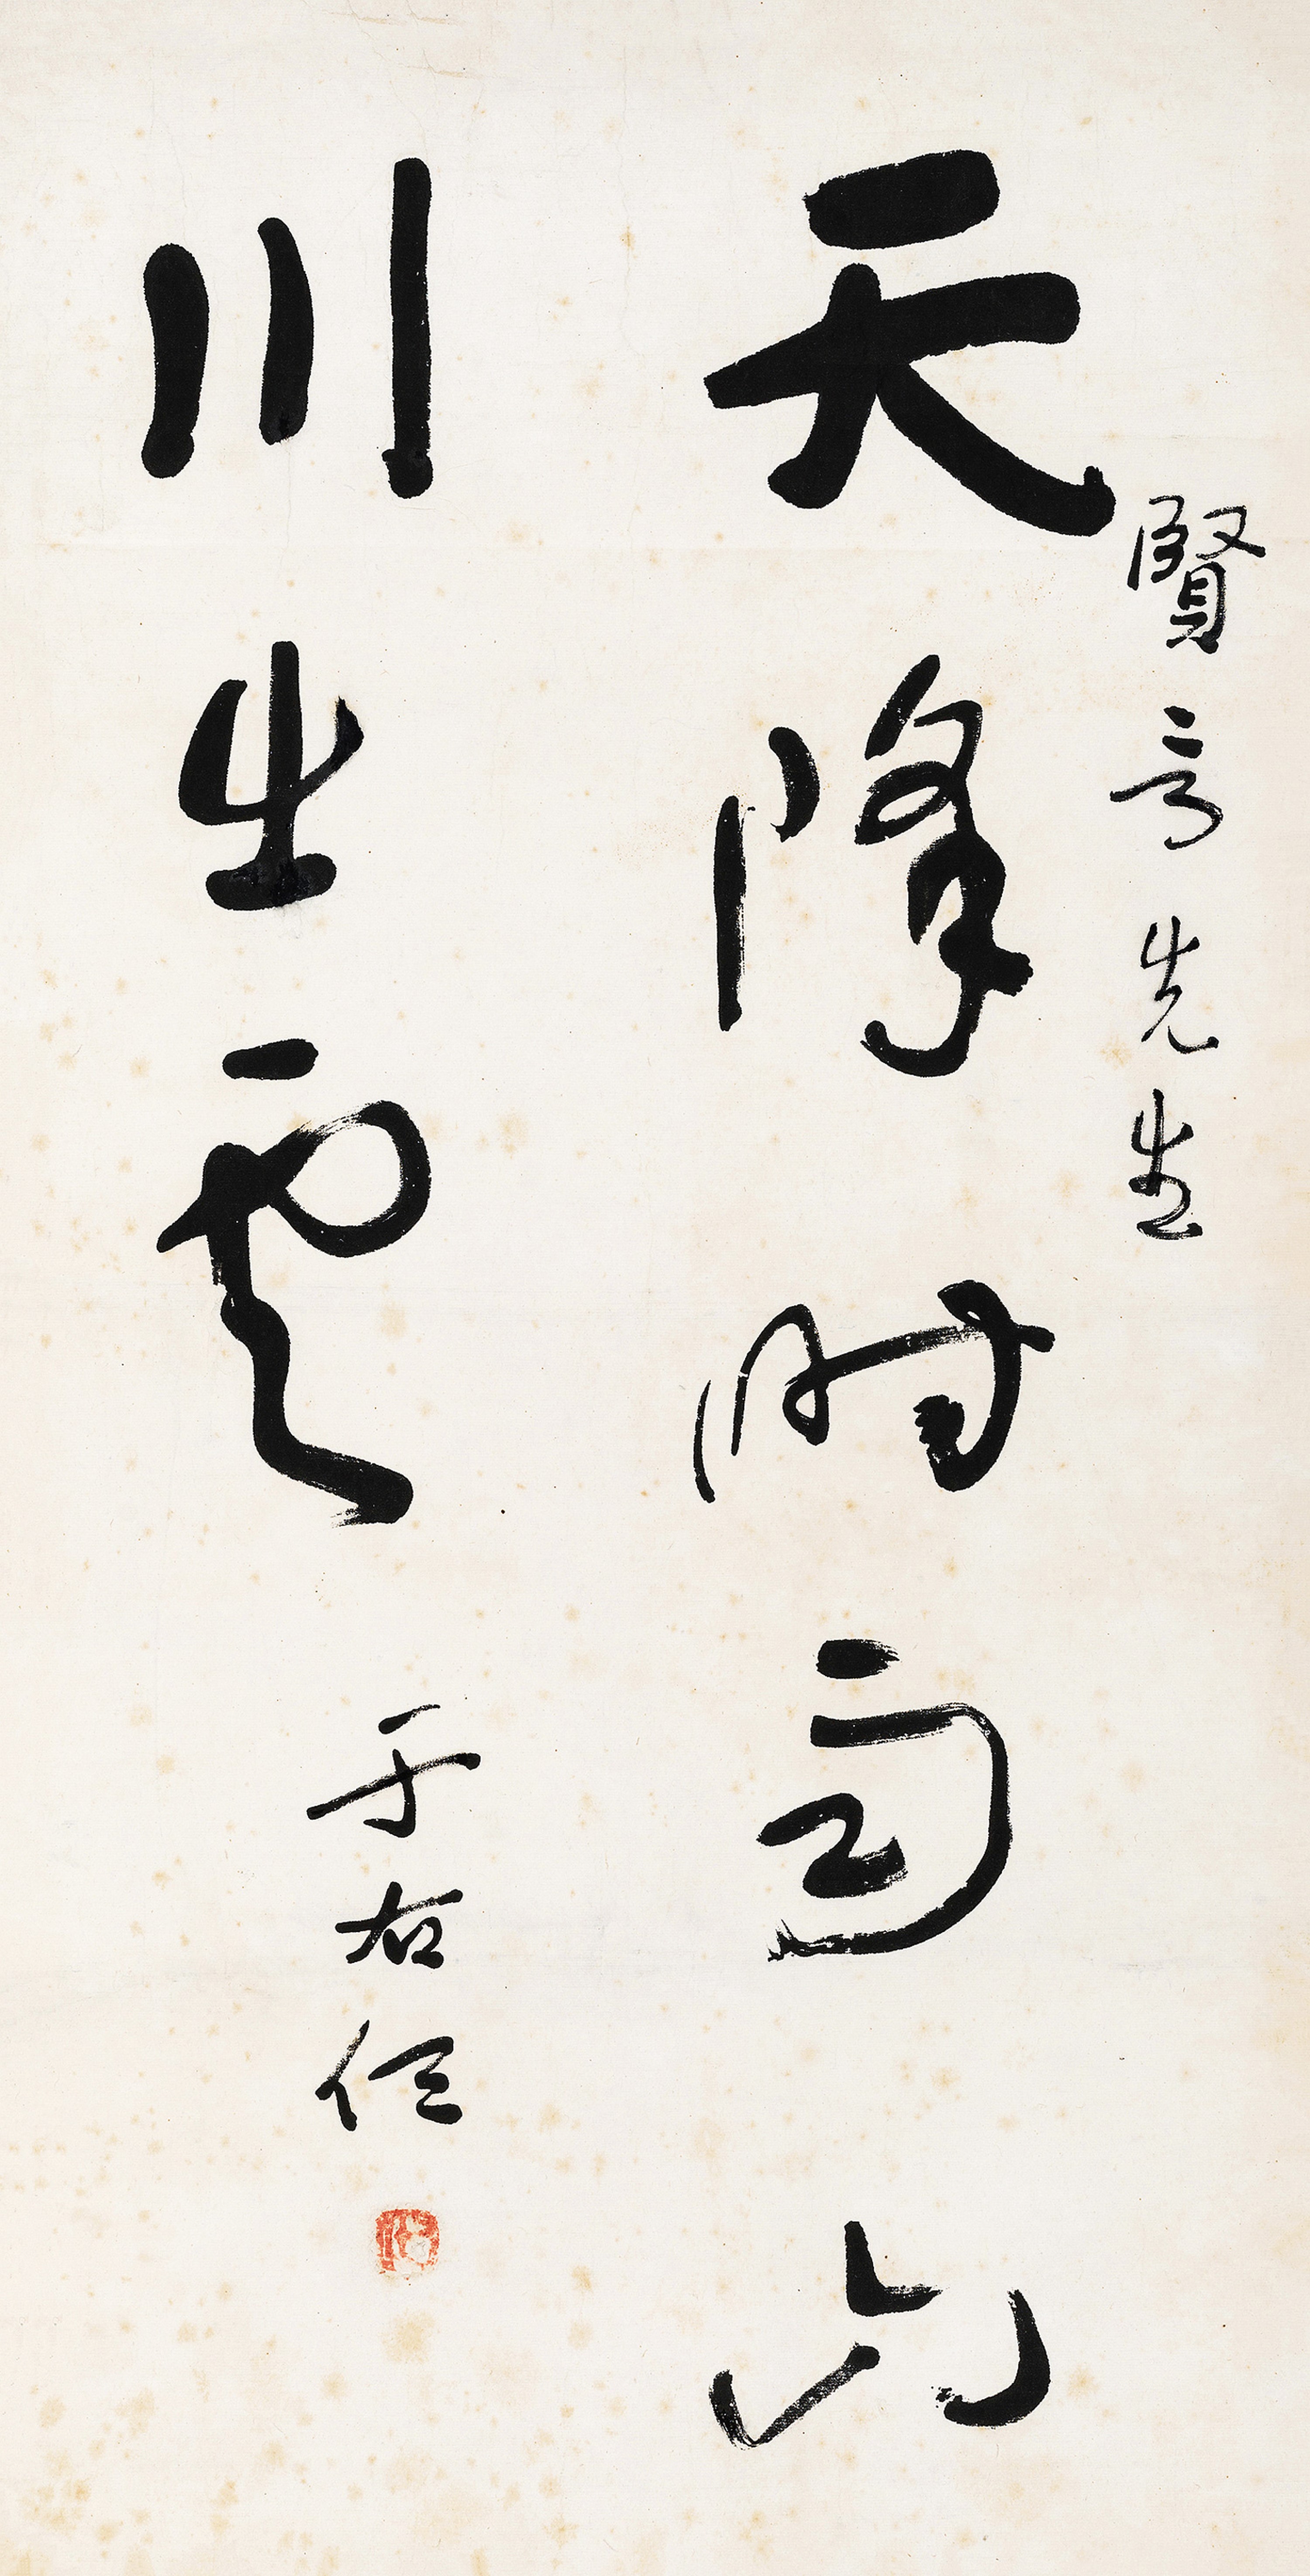 賢先生
天降時雨山
川生雲
于右任